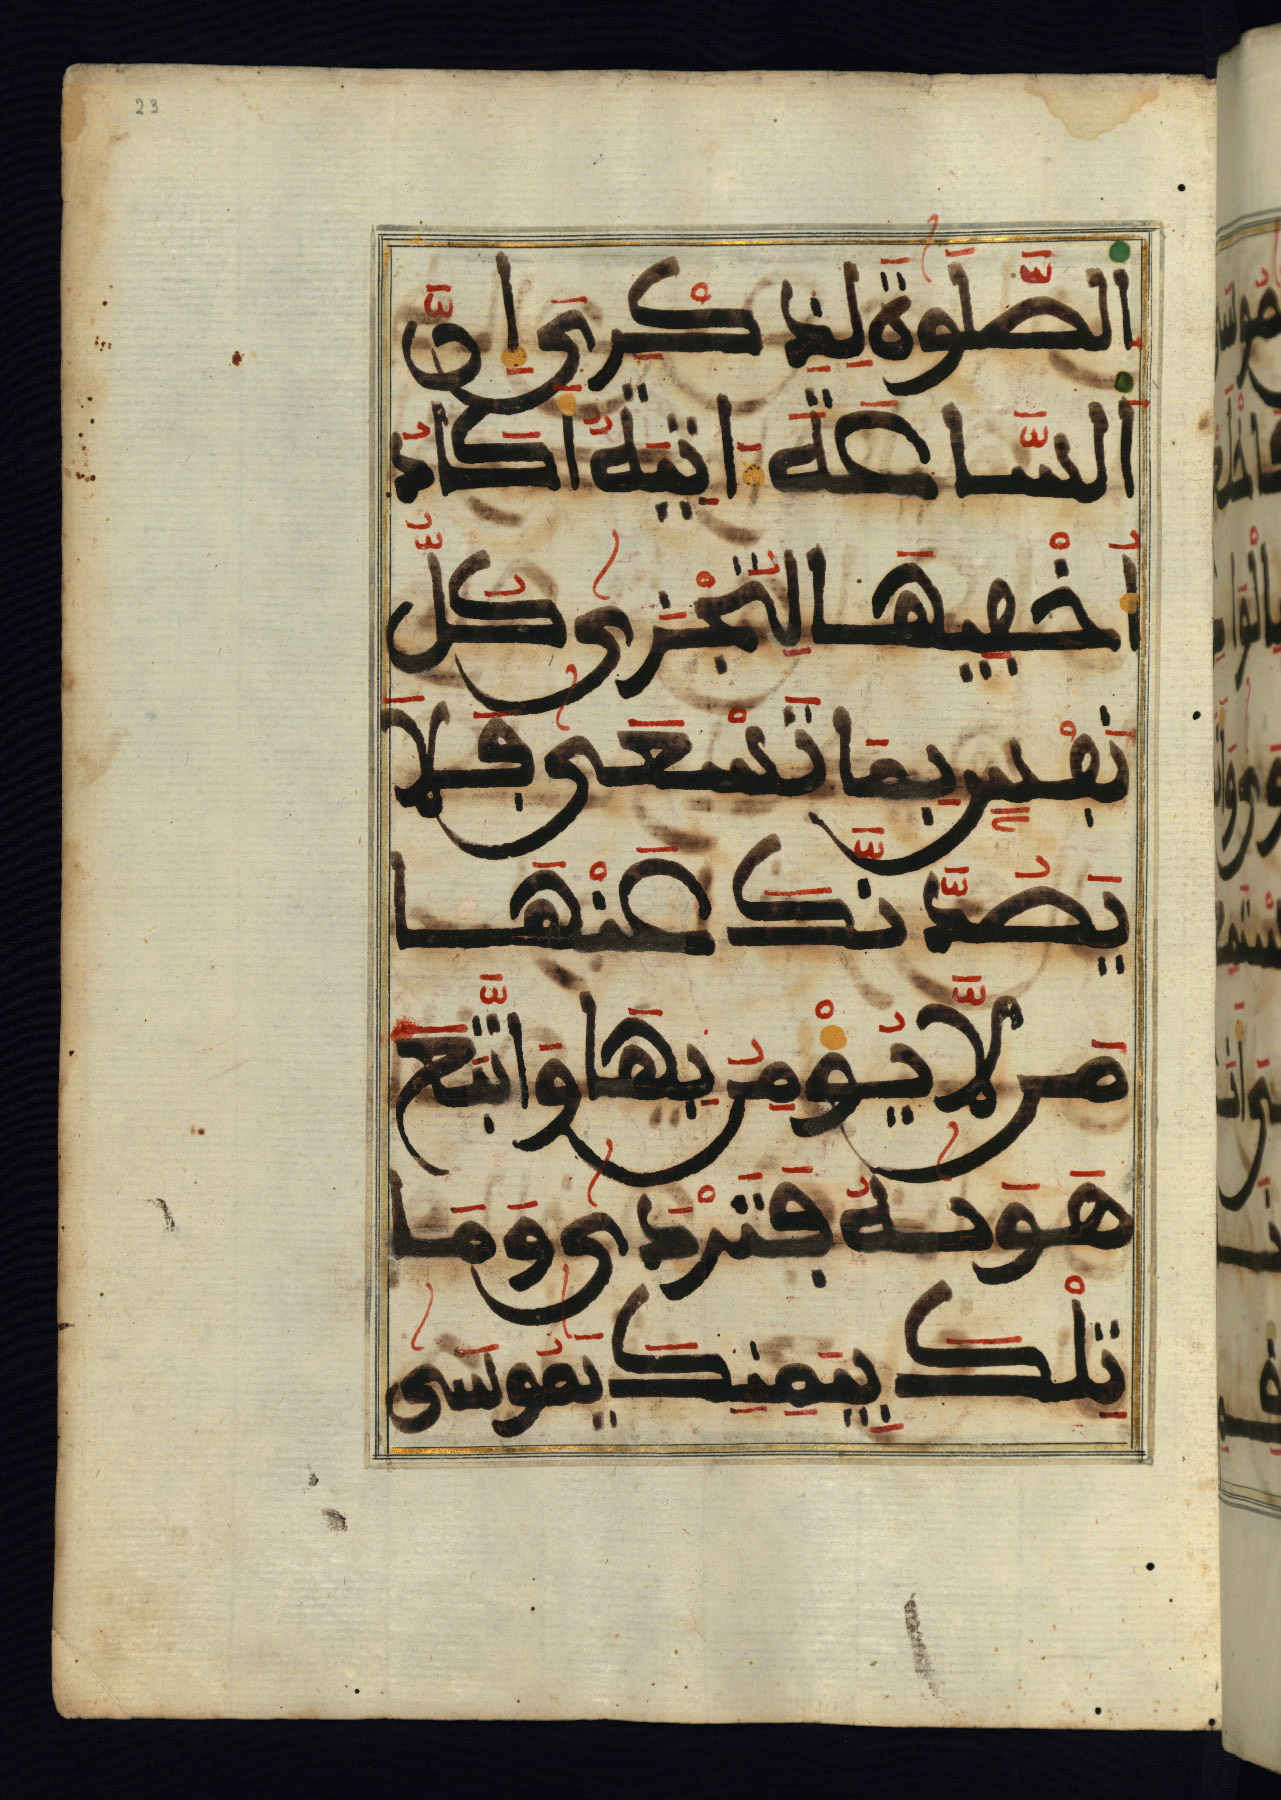 23
اَ۬لصَّلَوٰةَ لِذِكْرِىَ إِنَّ
اَ۬لسَّاعَةَ ءَاتِيَةٌ أَكَادُ
أُخْفِيهَا لِتُجْزَىٰ كُلُّ
نَفْسٍ بِمَا تَسْعَىٰ فَلَا
يَصُدَّنَّكَ عَنْهَا
مَن لَّا يُؤْمِنُ بِهَا وَاتَّبَعَ
هَوَىٰهُ فَتَرْدَىٰ وَمَا
تِلْكَ بِيَمِينِكَ يَٰمُوسَىٰ